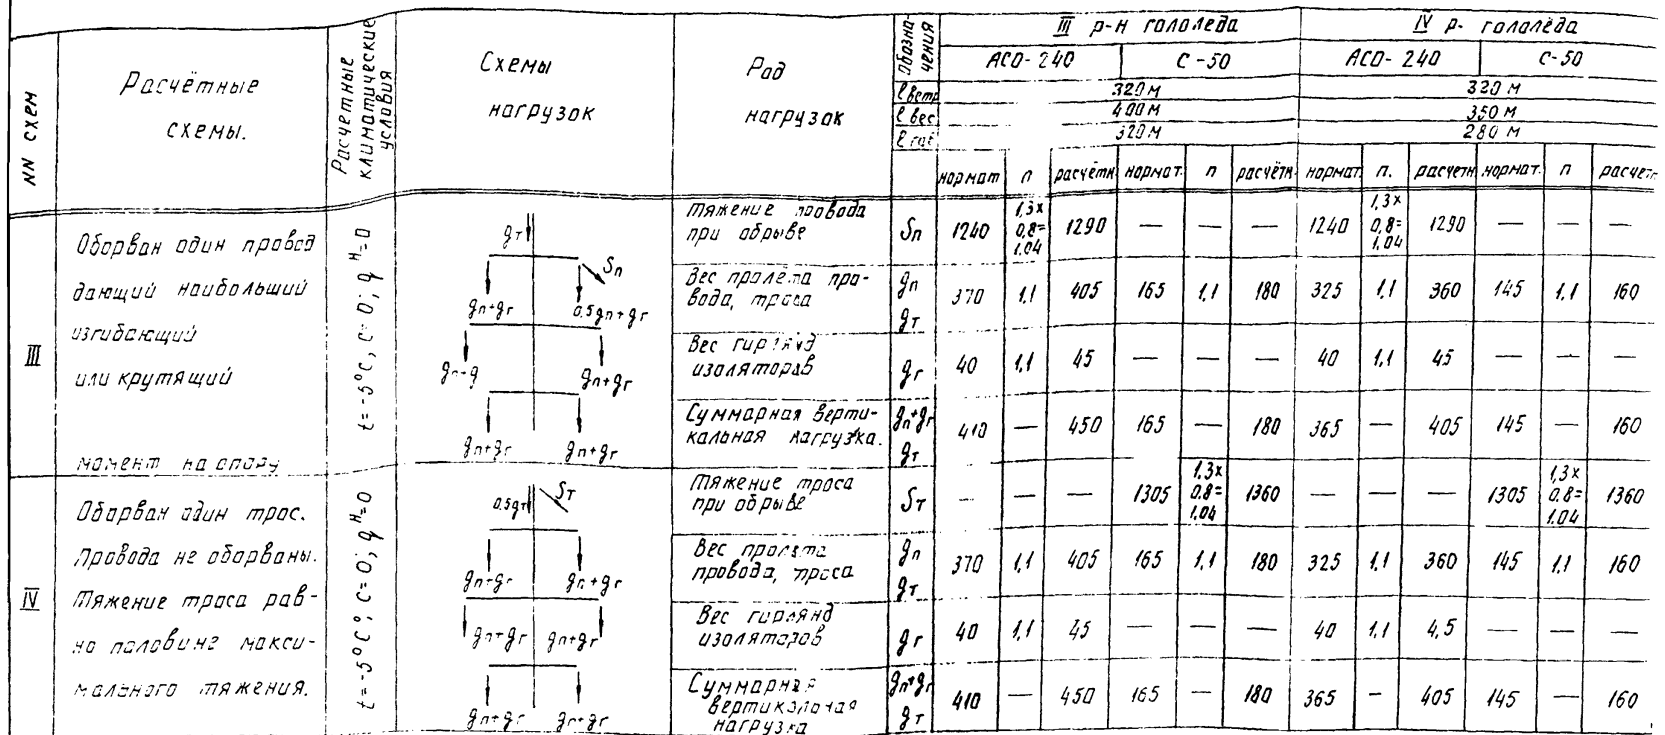 NN схем
Расчётные
схемы.
Расчетные
климатические
условия
Схемы
нагрузок
Род
нагрузок
Обозна-
чения
III р-н гололеда
IV р- гололёда
АСО-240
С-50
АСО-240
С-50
ℓ ветр
320 м
320 м
ℓ вес
400 м
350 м
ℓ габ
320 м
280 м
нормат n расчётн нормат. n расчётн нормат n. расчетн нормат. n расчетн
III
Оборван один провод
дающий наибольший
изгибающий
или крутящий
момент на опору
t=-5°C; C=0; q ᴴ=0
gт
Sп
gп+gг 0.5gп+gг
gп+g gп+gг
gп+gг gп+gг
Тяжение провода
при обрыве
Sп 1240 1,3x 0,8= 1.04 1290 — — — 1240 1,3x 0,8= 1.04 1290 — — —
Вес пролёта про-
вода, троса
gп
gт
370 1.1 405 165 1,1 180 325 1,1 360 145 1,1 160
Вес гирлянд
изоляторов
gг 40 1,1 45 — — — 40 1,1 45 — — —
Суммарная верти-
кальная нагрузка.
gп+gг
gт
410 — 450 165 — 180 365 — 405 145 — 160
IV
Оборван один трос.
Провода не оборваны.
Тяжение троса рав-
но половине макси-
мального тяжения.
t=-5°C°; C=0; q ᴴ=0
0.5gт Sт
gп+gг gп+gг
gп+gг gп+gг
gп+gг gп+gг
Тяжение троса
при обрыве
Sт — — — 1305 1.3x 0.8= 1.04 1360 — — — 1305 1,3x 0,8= 1.04 1360
Вес пролета
провода, троса
gп
gт
370 1,1 405 165 1,1 180 325 1,1 360 145 1,1 160
Вес гирлянд
изоляторов
gг 40 1,1 45 — — — 40 1,1 4,5 — — —
Суммарная
вертикальная
нагрузка
gп+gг
gт
410 — 450 165 — 180 365 — 405 145 — 160